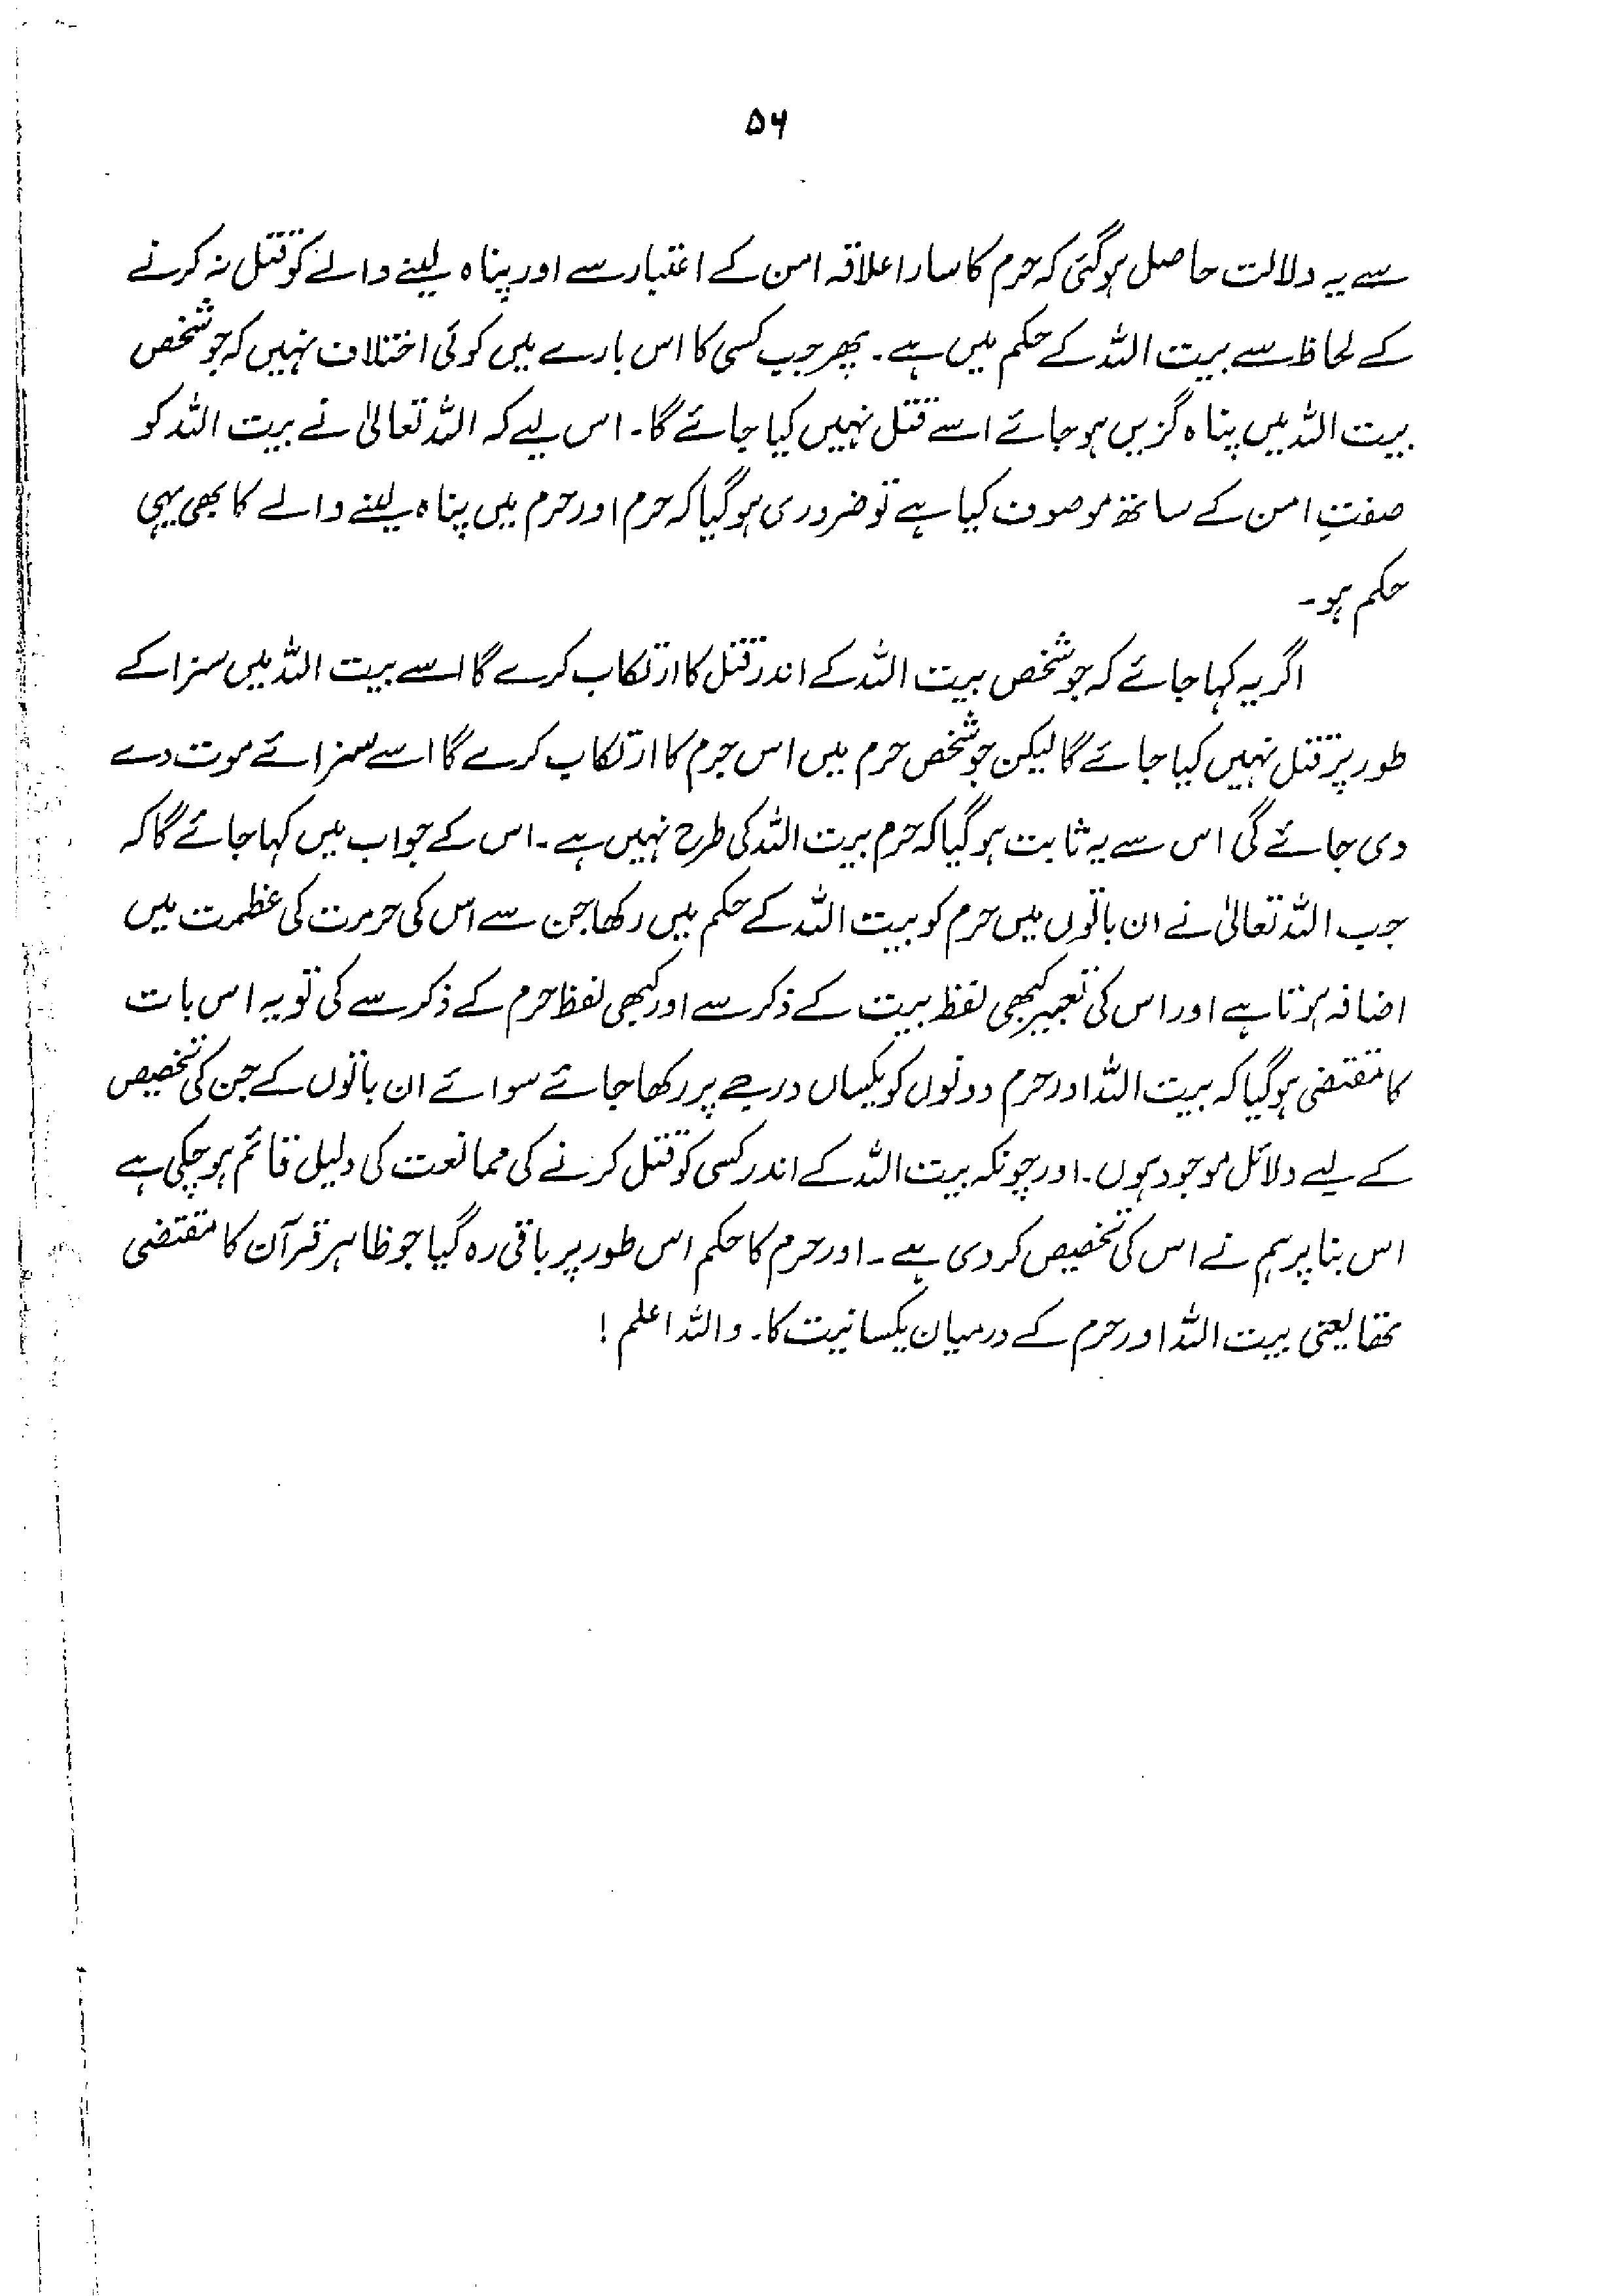 ۵۶
سے یہ دلالت حاصل ہوگئی کہ حرم کا سارا علاقہ امن کے اعتبار سے اور پناہ لینے والے کو قتل نہ کرنے
کے لحاظ سے بیت اللہ کے حکم میں ہے۔ پھر جب کسی کا اس بارے میں کوئی اختلاف نہیں کہ جو شخص
بیت اللہ میں پناہ گزیں ہو جائے اسے قتل نہیں کیا جائے گا۔ اس لیے کہ اللہ تعالیٰ نے بیت اللہ کو
صفتِ امن کے ساتھ موصوف کیا ہے تو ضروری ہوگیا کہ حرم اور حرم میں پناہ لینے والے کا بھی یہی
حکم ہو۔
اگر یہ کہا جائے کہ جو شخص بیت اللہ کے اندر قتل کا ارتکاب کرے گا اسے بیت اللہ میں سزا کے
طور پر قتل نہیں کیا جائے گا لیکن جو شخص حرم میں اس جرم کا ارتکاب کرے گا اسے سزائے موت دے
دی جائے گی اس سے یہ ثابت ہوگیا کہ حرم بیت اللہ کی طرح نہیں ہے۔ اس کے جواب میں کہا جائے گا کہ
جب اللہ تعالیٰ نے ان باتوں میں حرم کو بیت اللہ کے حکم میں رکھا جن سے اس کی حرمت کی عظمت میں
اضافہ ہوتا ہے اور اس کی تعبیر کبھی لفظ بیت کے ذکر سے اور کبھی لفظ حرم کے ذکر سے کی تو یہ اس بات
کا مقتضی ہوگیا کہ بیت اللہ اور حرم دونوں کو یکساں درجے پر رکھا جائے سوائے ان باتوں کے جن کی تخصیص
کے لیے دلائل موجود ہوں۔ اور چونکہ بیت اللہ کے اندر کسی کو قتل کرنے کی ممانعت کی دلیل قائم ہو چکی ہے
اس بنا پر ہم نے اس کی تخصیص کر دی ہے۔ اور حرم کا حکم اس طور پر باقی رہ گیا جو ظاہر قرآن کا مقتضی
تھا یعنی بیت اللہ اور حرم کے درمیان یکسانیت کا۔ واللہ اعلم!